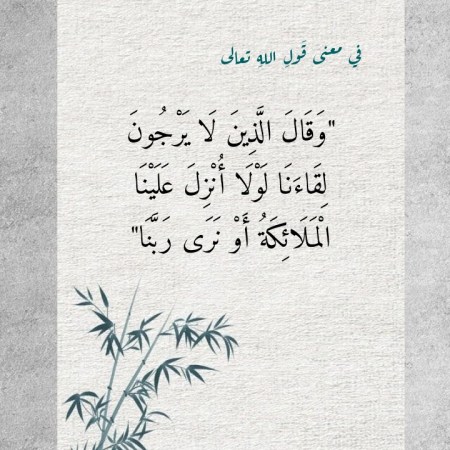 في معنى قَولِ اللهِ تعالى
"وَقَالَ الَّذِينَ لَا يَرْجُونَ
لِقَاءَنَا لَوْلَا أُنْزِلَ عَلَيْنَا
الْمَلَائِكَةُ أَوْ نَرَى رَبَّنَا"